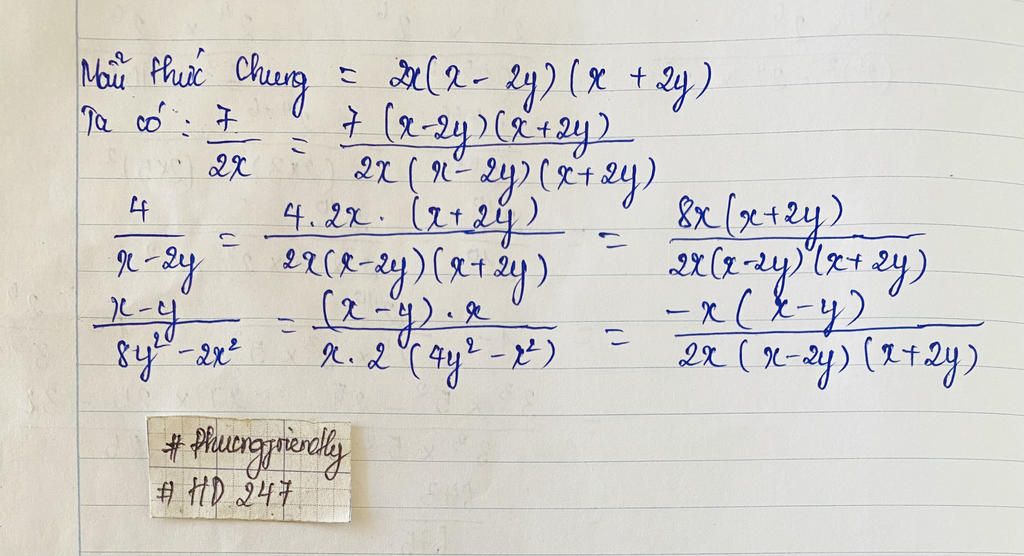 Mẫu thức chung = 2x(x - 2y)(x + 2y)
Ta có: 7/2x = 7(x-2y)(x+2y)/2x(x-2y)(x+2y)
4/x-2y = 4.2x.(x+2y)/2x(x-2y)(x+2y) = 8x(x+2y)/2x(x-2y)(x+2y)
x-y/8y²-2x² = (x-y).x/x.2(4y²-x²) = -x(x-y)/2x(x-2y)(x+2y)
# Phuongfriendly
# HD 247